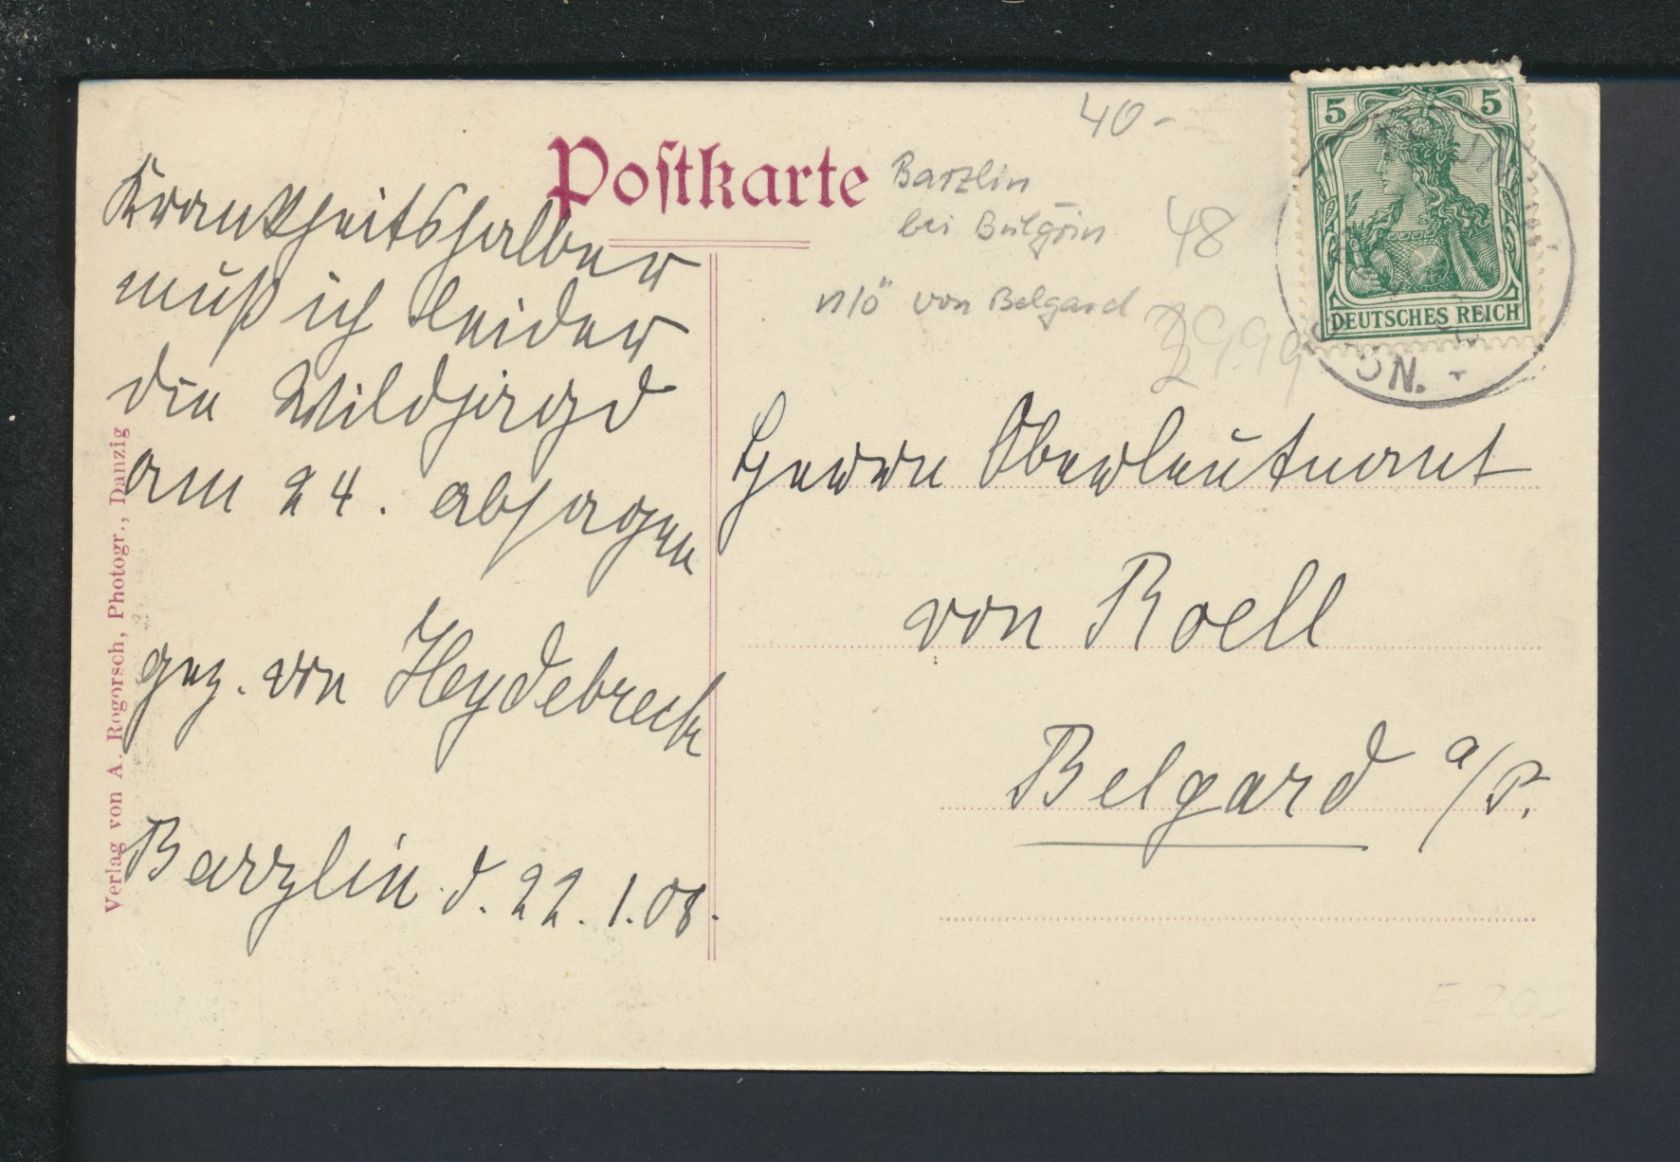 Postkarte
Krankheitshalber
muß ich leider
die Wildjagd
am 24. absagen
gez. von Heydebreck
Barzlin d. 22.1.08.
Verlag von A. Rogorsch, Photogr., Danzig
40-
Barzlin
bei Bulgrin
n/ö von Belgard
48
5 5
DEUTSCHES REICH
Herrn Oberleutnant
von Roell
Belgard a/P.